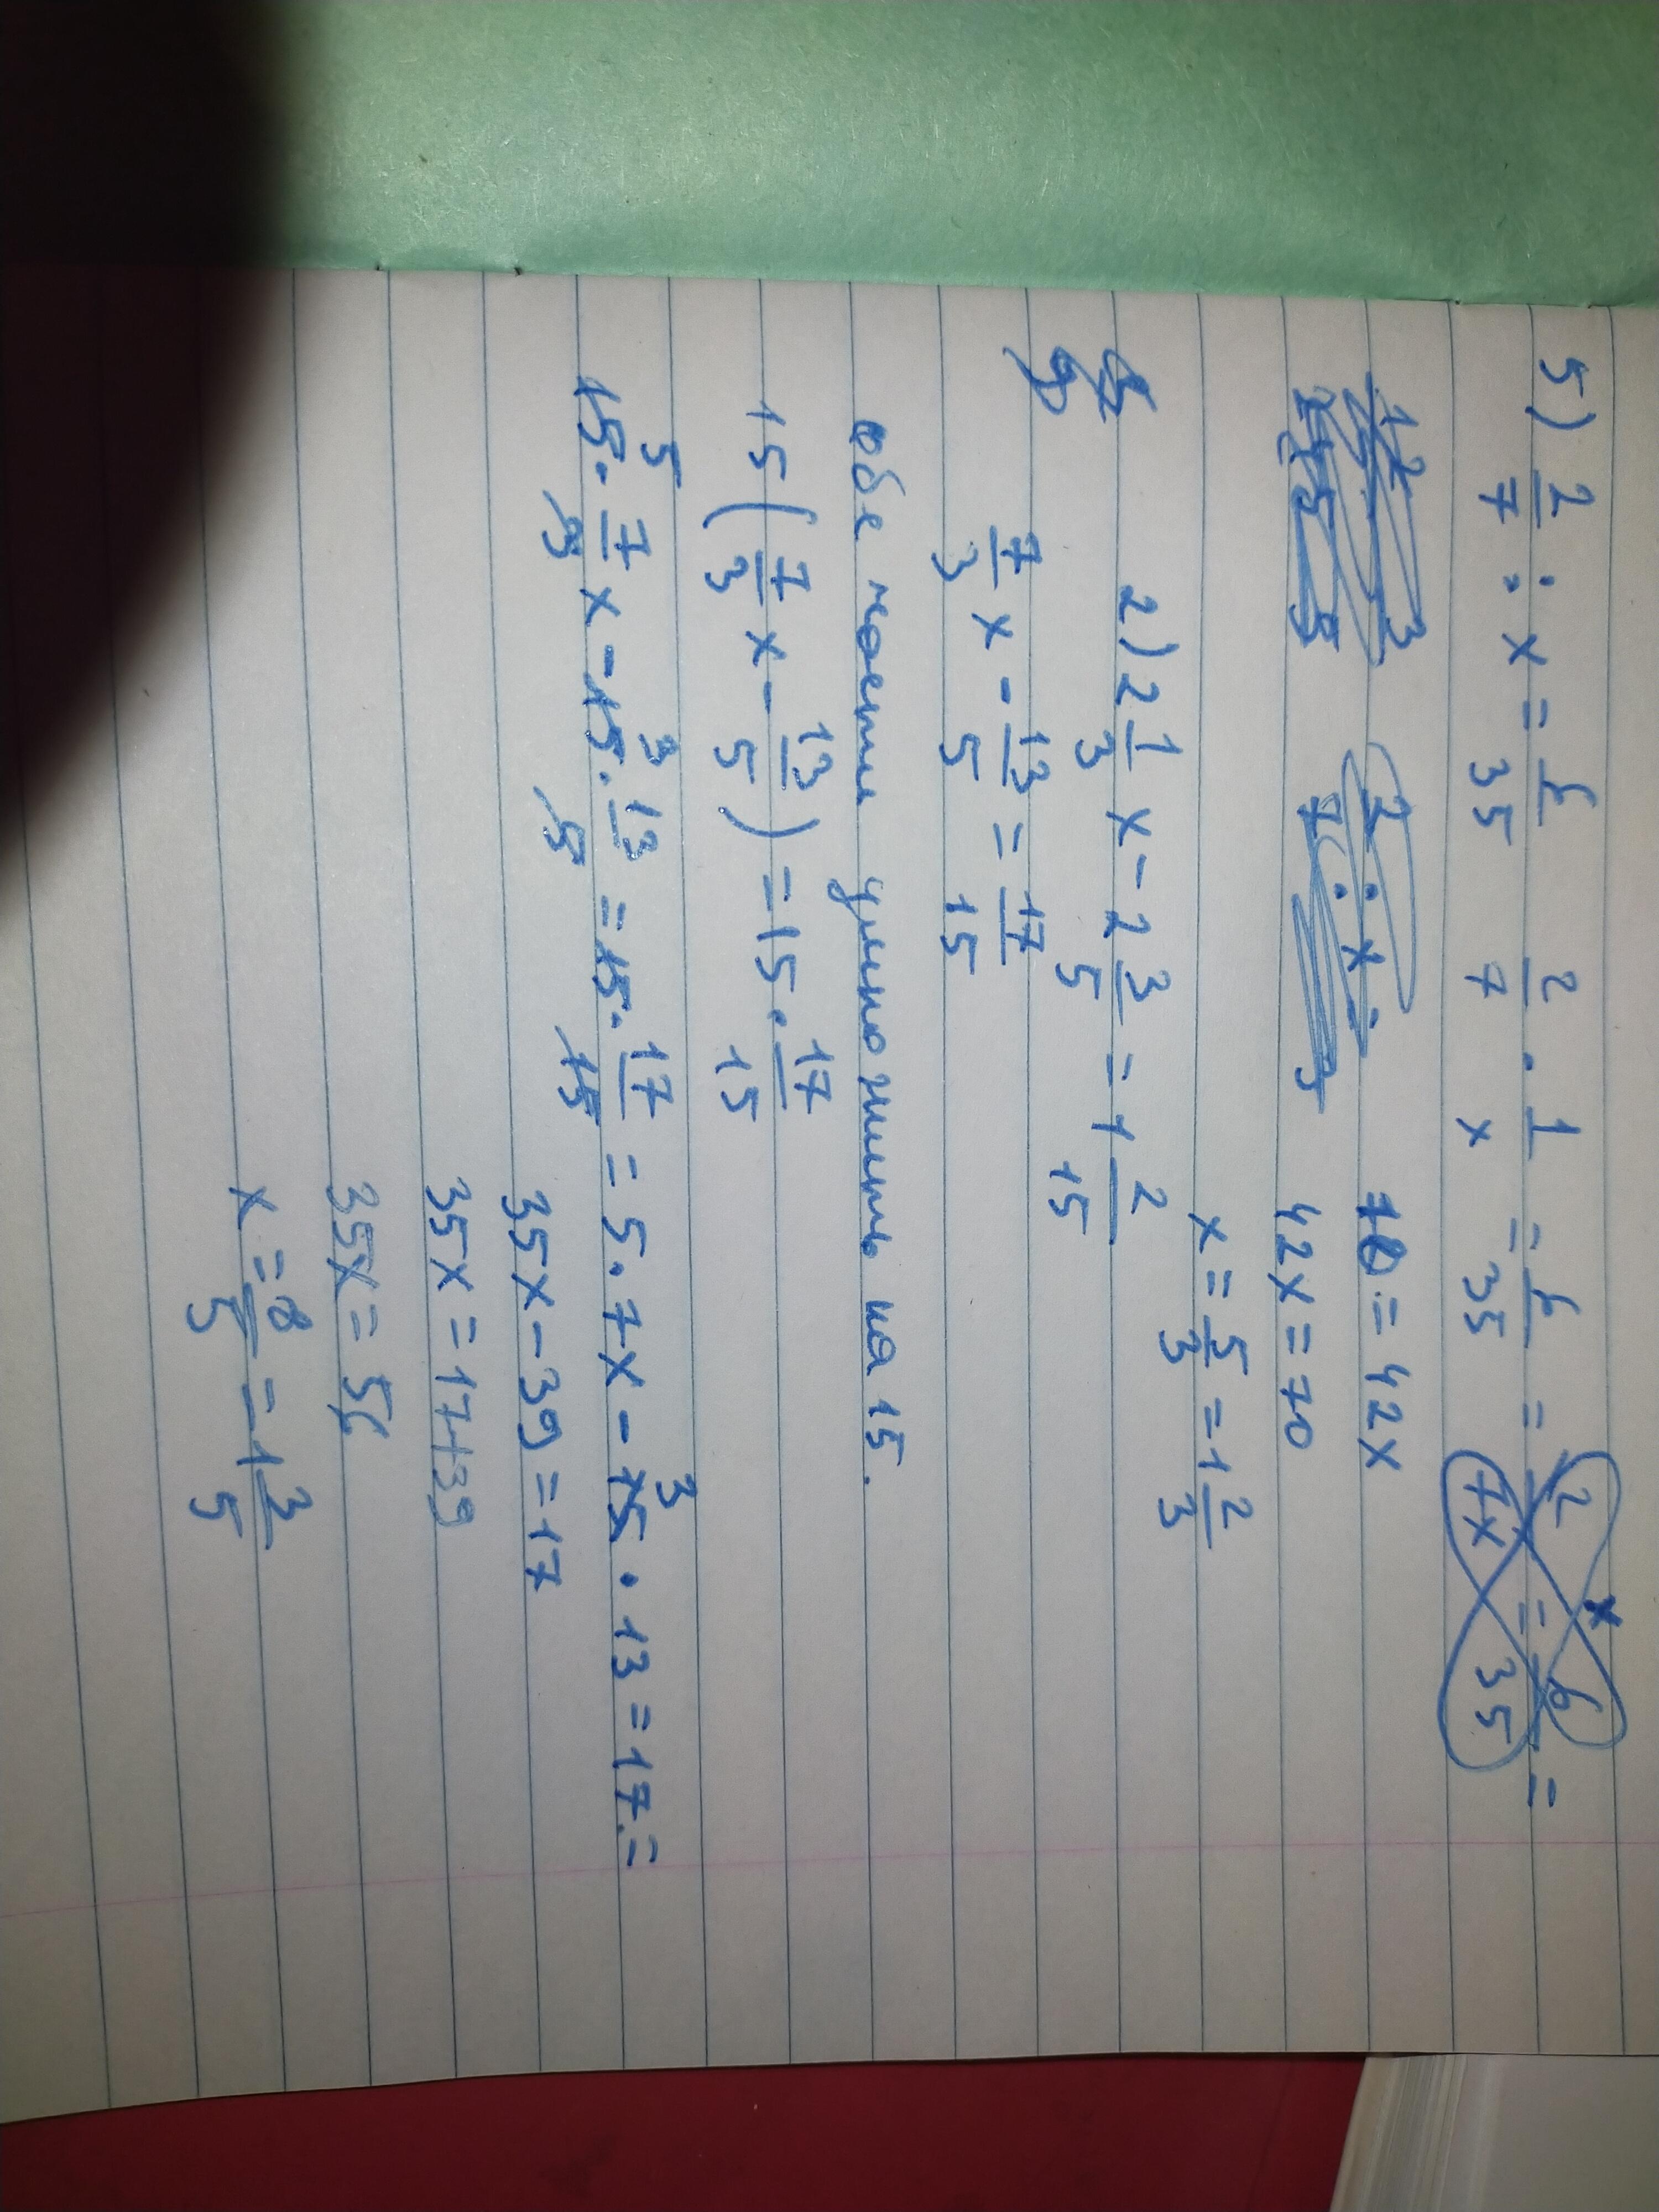 5) 2/7 : x = 6/35   2/7 · 1/x = 6/35 = 2/7x = 6/35 =
70 = 42x
42x = 70
x = 5/3 = 1 2/3
2) 2 1/3 x - 2 3/5 = 1 2/15
7/3 x - 13/5 = 17/15
обе части умножить на 15.
15 ( 7/3 x - 13/5 ) = 15 · 17/15
15 5 · 7/3 x - 15 3 · 13/5 = 15 · 17/15 = 5 · 7x - 15 3 · 13 = 17 =
35x - 39 = 17
35x = 17+39
35x = 56
x = 8/5 = 1 3/5